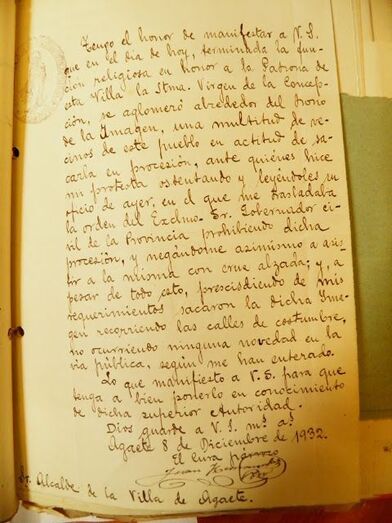 Tengo el honor de manifestar a V. S.
que en el día de hoy, terminada la fun-
ción religiosa en honor a la Patrona de
esta Villa la Stma. Virgen de la Concep-
ción, se aglomeró alrededor del trono
de la Imagen, una multitud de ve-
cinos de este pueblo en actitud de sa-
carla en procesión, ante quiénes hice
mi protesta ostentando y leyéndoles su
oficio de ayer, en el que me trasladaba
la orden del Exclmo. Sr. Gobernador ci-
vil de la Provincia prohibiendo dicha
procesión, y negándome asimismo a asis-
tir a la misma con cruz alzada; y, a
pesar de todo esto, prescindiendo de mis
requerimientos sacaron la dicha Ima-
gen recorriendo las calles de costumbre,
no ocurriendo ninguna novedad en la
vía pública, según me han enterado.
Lo que manifiesto a V. S. para que
tenga a bien ponerlo en conocimiento
de dicha superior autoridad.
Dios guarde a V. S. ms. as.
Agaete 8 de Diciembre de 1932
El cura párroco
Juan
Sr. Alcalde de la Villa de Agaete.